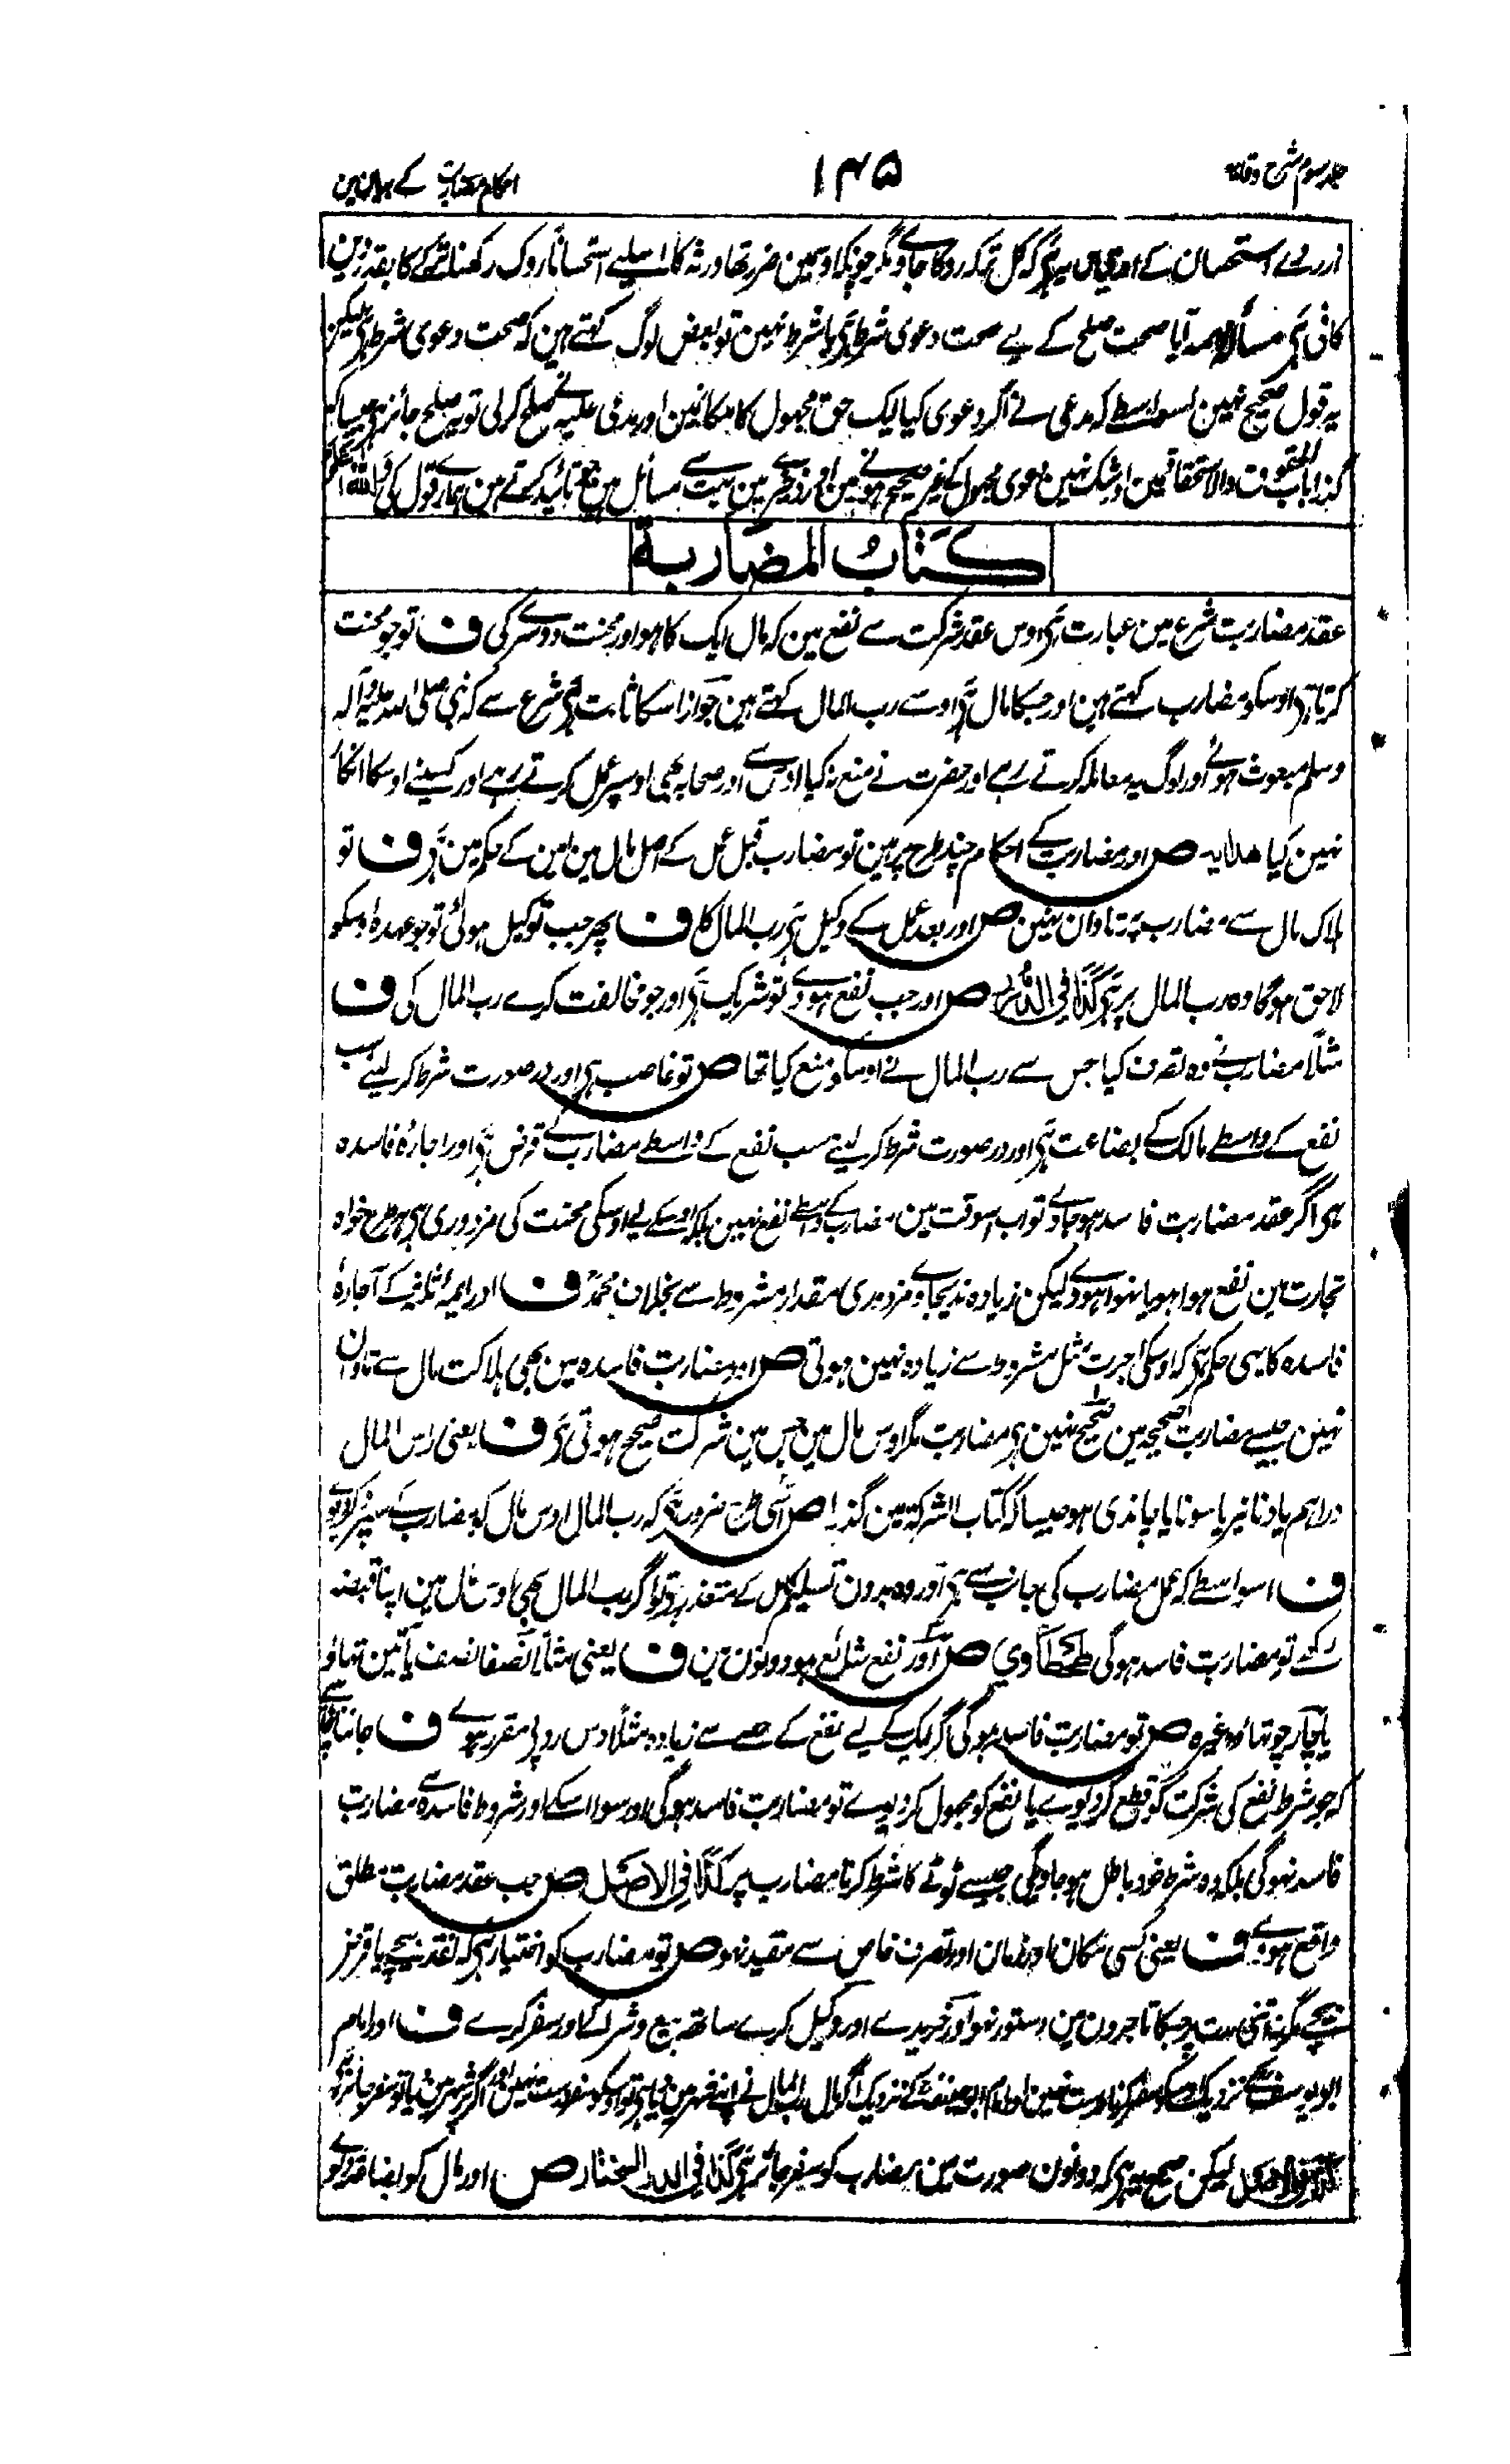 جلد سوم شرح وقایہ
۱۴۵
احکام مضاربت کے بیان مین
ازروے استحسان کے اور قیاس یہ ہی کہ کل ترکہ روکا جاوے مگر چونکہ اوسمین ضرر تھا ورثہ کا اسلیے استحسانًا روک رکھنا ترکے کا بقدر دین
کافی ہی مسألہ آیا صحت صلح کے لیے صحت دعوی شرط ہی یا شرط نہین تو بعض لوگ کہتے ہین کہ صحت دعوی شرط ہی لیکن
یہ قول صحیح نہین اسواسطے کہ مدعی نے اگر دعوی کیا ایک حق مجہول کا مکان مین اور مدعی علیہ نے صلح کر لی تو یہ صلح جائز ہی جیسا کہ
گذرا باب الحقوق والاستحقاق مین اور شک نہین دعوی مجہول کے غیر صحیح ہونے مین اور ذخیرے مین بہت سے مسائل ہین جو تائید کرتے ہین ہمارے قول کی واللہ اعلم
کتاب المضاربة
عقد مضاربت شرع مین عبارت ہی اوس عقد شرکت سے نفع مین کہ مال ایک کا ہو اور محنت دوسرے کی ف تو جو محنت
کرتا ہی اوسکو مضارب کہتے ہین اور جسکا مال ہی اوسے رب المال کہتے ہین جواز اسکا ثابت ہی شرع سے کہ نبی صلی اللہ علیہ وآلہ
وسلم مبعوث ہوئے اور لوگ یہ معاملہ کرتے رہے اور حضرت نے منع نہ کیا اوس سے اور صحابہ بھی اوسپر عمل کرتے رہے اور کسینے اوسکا انکار
نہین کیا ھدایہ ص اور مضاربت کے احکام چند طرح پر ہین تو مضارب قبل عمل کے اصل مال مین امین کے حکم مین ہی ف تو
ہلاک مال سے مضارب پر تاوان نہین ص اور بعد عمل کے وکیل ہی رب المال کا ف پھر جب توکیل ہوئی تو جو عہدہ اوسکو
لاحق ہوگا وہ رب المال پر ہی کذا فی الدرر ص اور جب نفع ہووے تو شریک ہی اور جو مخالفت کرے رب المال کی ف
مثلًا مضارب نے وہ تصرف کیا جس سے رب المال نے اوسکو منع کیا تھا ص تو غاصب ہی اور درصورت شرط کر لینے سب
نفع کے واسطے مالک کے بضاعت ہی اور درصورت شرط کر لینے سب نفع کے واسطے مضارب کے قرض ہی اور اجارۂ فاسدہ
ہی اگر عقد مضاربت فاسد ہو جاوے تو اب اسوقت مین مضارب کے واسطے نفع نہین بلکہ اوسکے لیے اوسکی محنت کی مزدوری ہی ہر طرح خواہ
تجارت مین نفع ہوا ہو یا نہوا ہو لیکن زیادہ ندیجاوے مزدوری مقدار مشروط سے بخلاف محمد ف اور ایمۂ ثلاثہ کے آجارۂ
فاسدہ کا یہی حکم ہی کہ اوسکی اجرت مثل مشروط سے زیادہ نہین ہوتی ص اور مضاربت فاسدہ مین بھی ہلاکت مال سے تاوان
نہین جیسے مضاربت صحیحہ مین صحیح نہین ہی مضاربت مگر اوس مال مین جس مین شرکت صحیح ہوتی ہی ف یعنی راس المال
دراہم یا دنانیر یا سونا یا چاندی ہو جیسا کہ کتاب الشرکة مین گذرا ص اسی طرح ضرور ہی کہ رب المال اوس مال کو مضارب کے سپرد کر دیوے
ف اسواسطے کہ عمل مضارب کی جانب سے ہی اور وہ بدون تسلیم کل کے متعذر ہی تو اگر رب المال بھی اوس مال مین اپنا قبضہ
رکھے تو مضاربت فاسد ہوگی طحطاوی ص اور نفع شائع ہو دونون مین ف یعنی مثلًا نصفا نصف یا تین تہاؤ
یا چار چوتہاؤ وغیرہ ص تو مضاربت فاسد ہوگی اگر ایک کے لیے نفع کے حصے سے زیادہ مثلًا دس روپے مقرر ہووے ف جاننا چاہیے
کہ جو شرط نفع کی شرکت کو قطع کر دیوے یا نفع کو مجہول کر دیوے تو مضاربت فاسد ہوگی اور سوا اسکے اور شروط فاسدہ سے مضاربت
فاسد نہوگی بلکہ وہ شرط خود باطل ہو جاویگی جیسے ٹوٹے کا شرط کرنا مضارب پر کذا فی الاصل ص جب عقد مضاربت مطلق
واقع ہووے ف یعنی کسی مکان اور زمان اور تصرف خاص سے مقید نہو ص تو مضارب کو اختیار ہی کہ نقد بیچے یا قرض
بیچے مگر نہ اتنی مدت پر جسکا تاجرون مین دستور نہو اور خریدے اور وکیل کرے ساتھ بیع و شرا کے اور سفر کرے ف اور امام
ابو یوسف کے نزدیک اوسکو سفر کرنا درست نہین اور امام ابو حنیفہ کے نزدیک اگر مال رب المال نے اپنے شہر مین دیا ہی تو اوسکو سفر درست نہین اور اگر غیر شہر مین دیا تو سفر جائز ہی
کذا فی الاصل لیکن صحیح یہ ہی کہ دونون صورت مین مضارب کو سفر جائز ہی کذا فی الدر المختار ص اور مال کو بضاعۃ دیوے